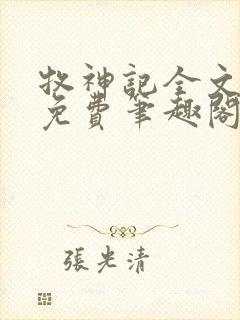 牧神記全文
免費筆趣閣
張光清